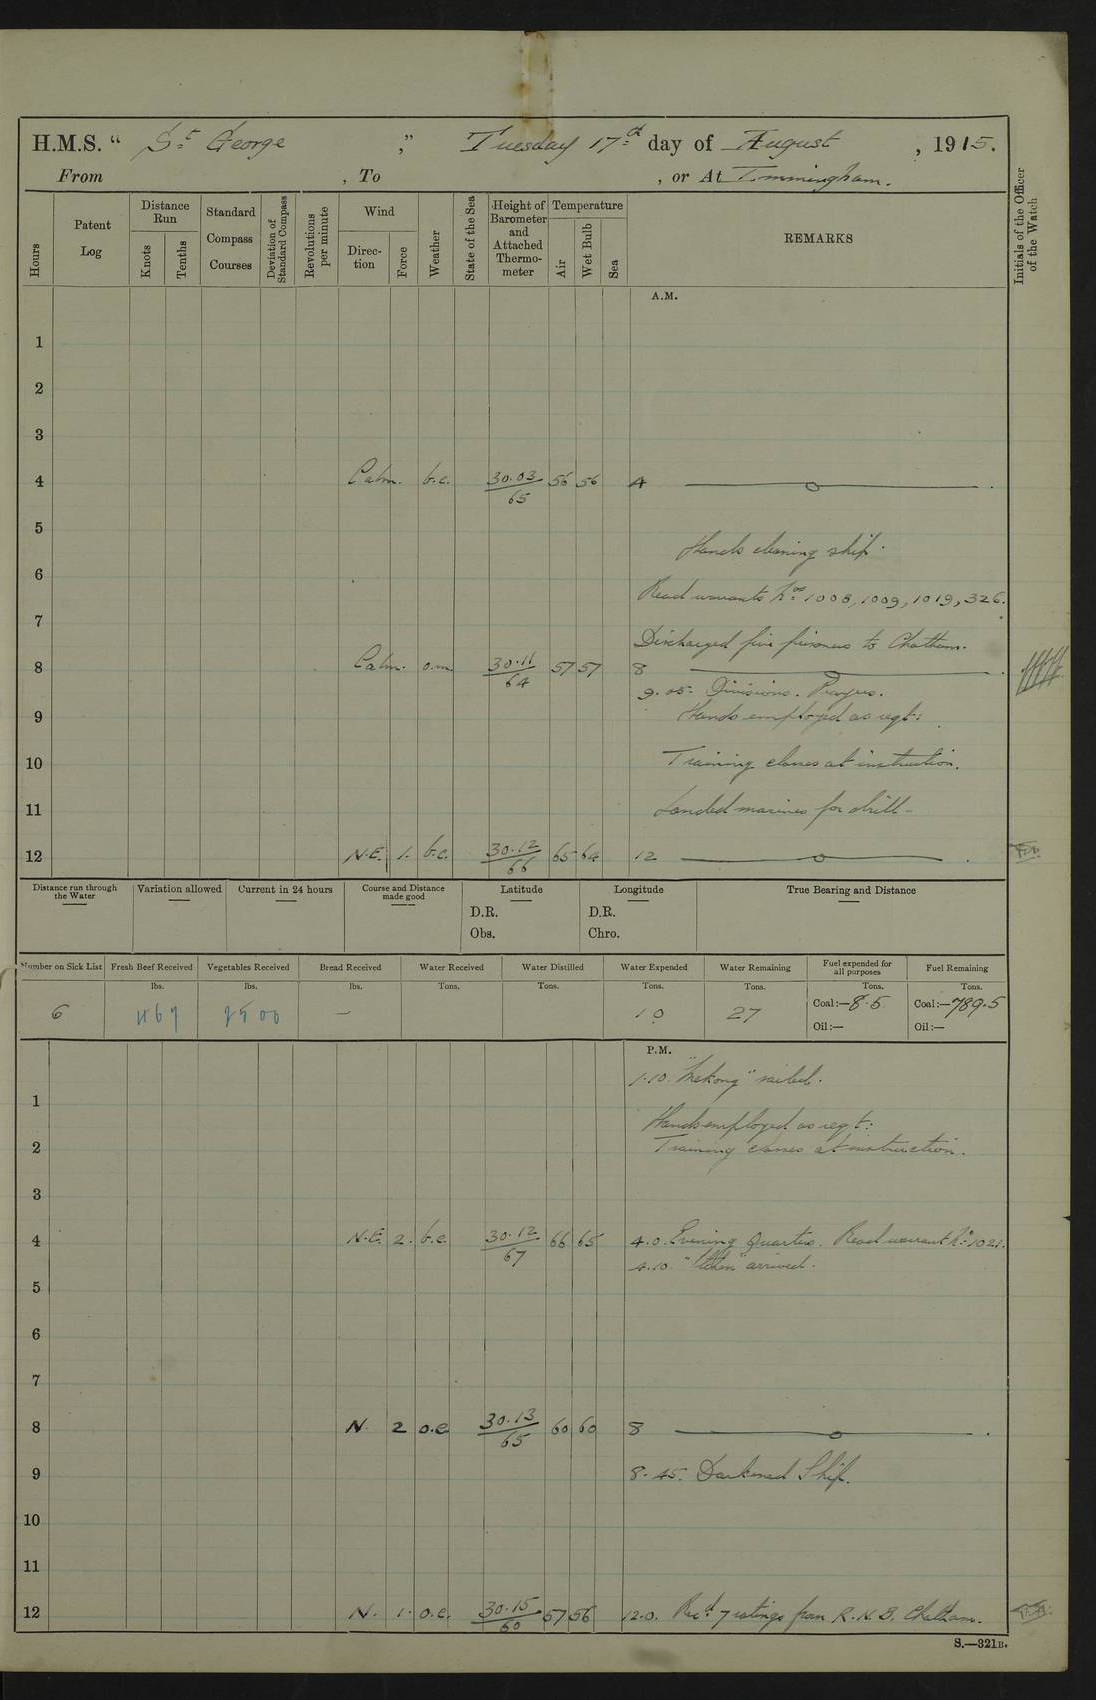 H.M.S. “ St. George ,” Tuesday 17th day of August , 1915.
From , To , or At Immingham.
Hours
Patent Log
Distance Run
Knots
Tenths
Standard Compass Courses
Deviation of Standard Compass
Revolutions per minute
Wind
Direction
Force
Weather
State of the Sea
Height of Barometer and Attached Thermometer
Temperature
Air
Wet Bulb
Sea
REMARKS
Initials of the Officer of the Watch
A.M.
1
2
3
4 Calm. b.c. 30.03/65 56 56 4
5
Hands cleaning ship.
6
Read warrants Nos. 1008, 1009, 1019, 326.
7
Discharged five prisoners to Chatham.
8 Calm. o.m 30.11/64 57 57 8
9.05. Divisions. Prayers.
9 Hands employed as reqt:
10 Training classes at instruction.
11 Landed marines for drill-
12 N.E. 1. b.c. 30.12/66 65 64 12
Distance run through the Water
Variation allowed
Current in 24 hours
Course and Distance made good
Latitude
D.R.
Obs.
Longitude
D.R.
Chro.
True Bearing and Distance
Number on Sick List Fresh Beef Received Vegetables Received Bread Received Water Received Water Distilled Water Expended Water Remaining Fuel expended for all purposes Fuel Remaining
lbs. lbs. lbs. Tons. Tons. Tons. Tons. Tons. Tons.
6 467 2500 – 10 27 Coal:—8.5 Coal:—789.5
Oil:— Oil:—
P.M.
1.10. "Mekong" sailed.
1
Hands employed as reqt:
2 Training classes at instruction.
3
4 N.E. 2. b.c. 30.12/67 66 65 4.0. Evening Quarters. Read warrant No. 1021.
4.10. arrived.
5
6
7
8 N. 2 o.c 30.13/65 60 60 8
9 8.45. Darkened Ship.
10
11
12 N. 1. o.c. 30.15/60 57 56 12.0. Recd. 7 ratings from R.N.B. Chatham.
S.—321B.